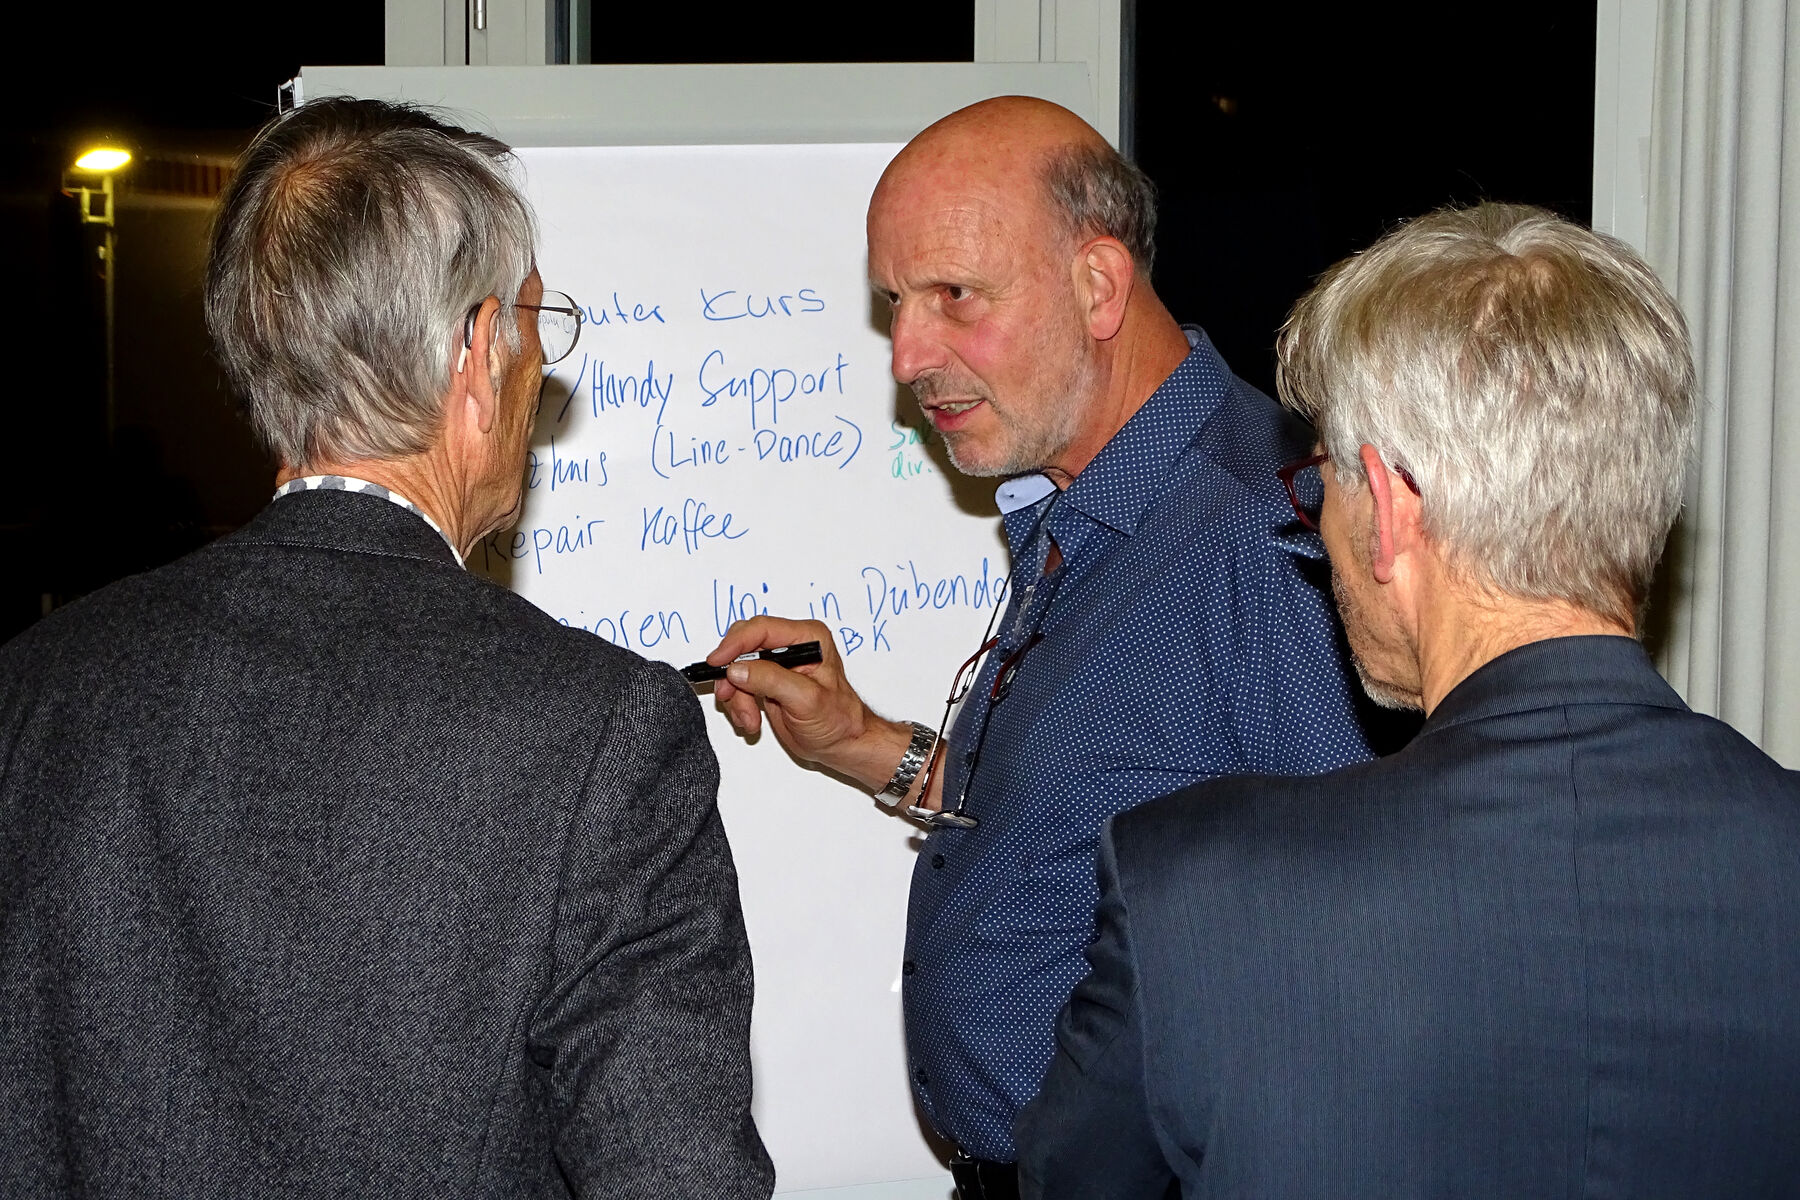 puter Kurs
/Handy Support
(Line-Dance)
div.
Repair Kaffee
nioren Uni in Dübendo
BK